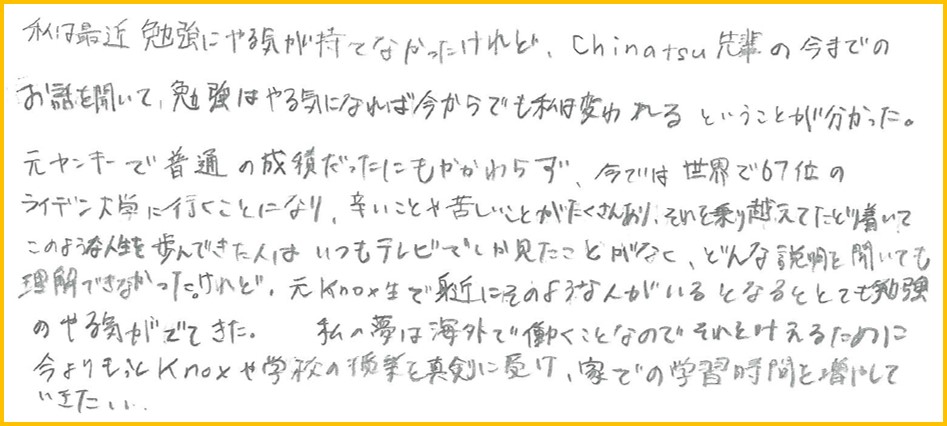 私は最近勉強にやる気が持てなかったけれど、Chinatsu先輩の今までの
お話を聞いて、勉強はやる気になれば今からでも私は変われるということが分かった。
元ヤンキーで普通の成績だったにもかかわらず、今では世界で67位の
ライデン大学に行くことになり、辛いことや苦しいことがたくさんあり、それを乗り越えてたどり着いて
このような人生を歩んできた人はいつもテレビでしか見たことがなく、どんな説明を聞いても
理解できなかったけれど、元Knox生で身近にそのような人がいるとなるととても勉強
のやる気がでてきた。 私の夢は海外で働くことなのでそれを叶えるために
今よりもっとKnoxや学校の授業を真剣に受け、家での学習時間を増やして
いきたい。